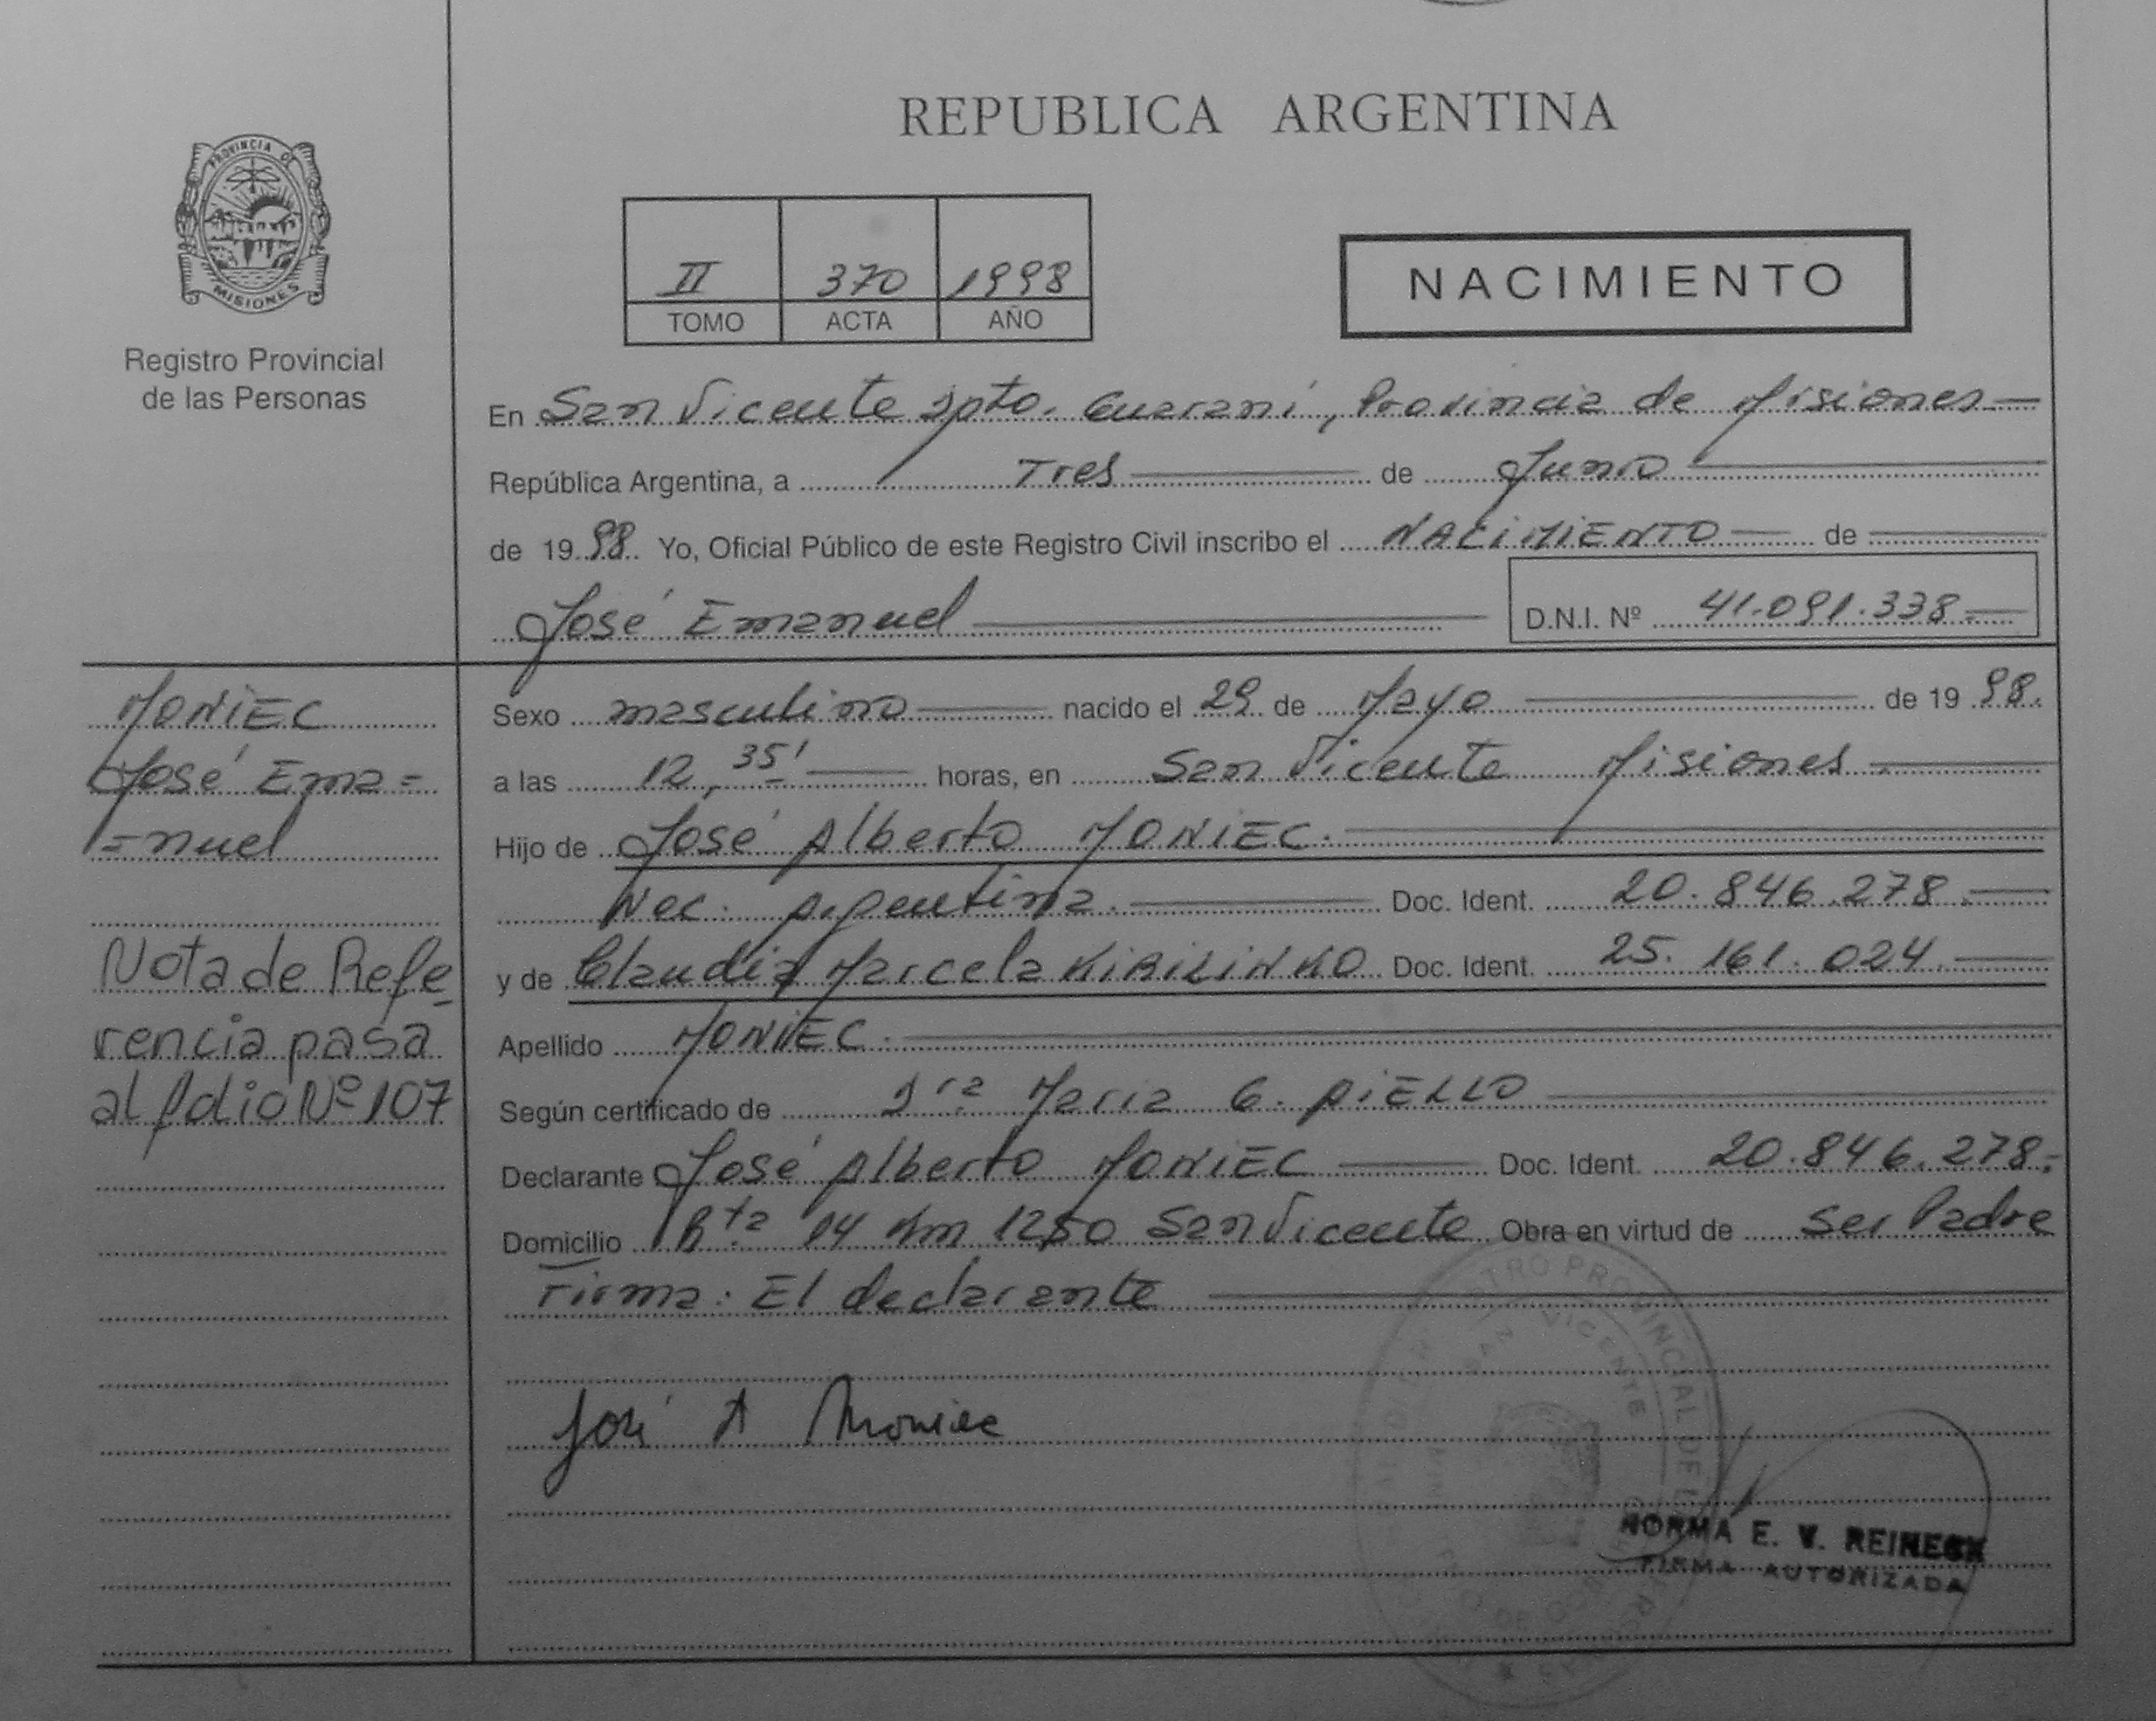 REPUBLICA ARGENTINA
PROVINCIA DE
MISIONES
Registro Provincial
de las Personas
II 370 1998
TOMO ACTA AÑO
NACIMIENTO
En San Vicente Dpto. Guaraní, Provincia de Misiones
República Argentina, a Tres de Junio
de 1998 Yo, Oficial Público de este Registro Civil inscribo el NACIMIENTO de
José Emanuel D.N.I. Nº 41.091.338
MONIEC
José Ema=
=nuel
Nota de Refe
rencia pasa
al folio Nº 107
Sexo masculino nacido el 29 de Mayo de 1998.
a las 12,35' horas, en San Vicente Misiones
Hijo de José Alberto MONIEC.
Nac. Argentina. Doc. Ident. 20.846.278.
y de Claudia Marcela Doc. Ident. 25.161.024.
Apellido MONIEC.
Según certificado de Dra Maria G. AIELLO
Declarante José Alberto MONIEC Doc. Ident. 20.846.278.
Domicilio Rta 14 Km 1250 San Vicente Obra en virtud de ser Padre
Firma: El declarante
José A Moniec
REGISTRO PROVINCIAL DE
SAN VICENTE
NORMA E. V. REINECK
FIRMA AUTORIZADA